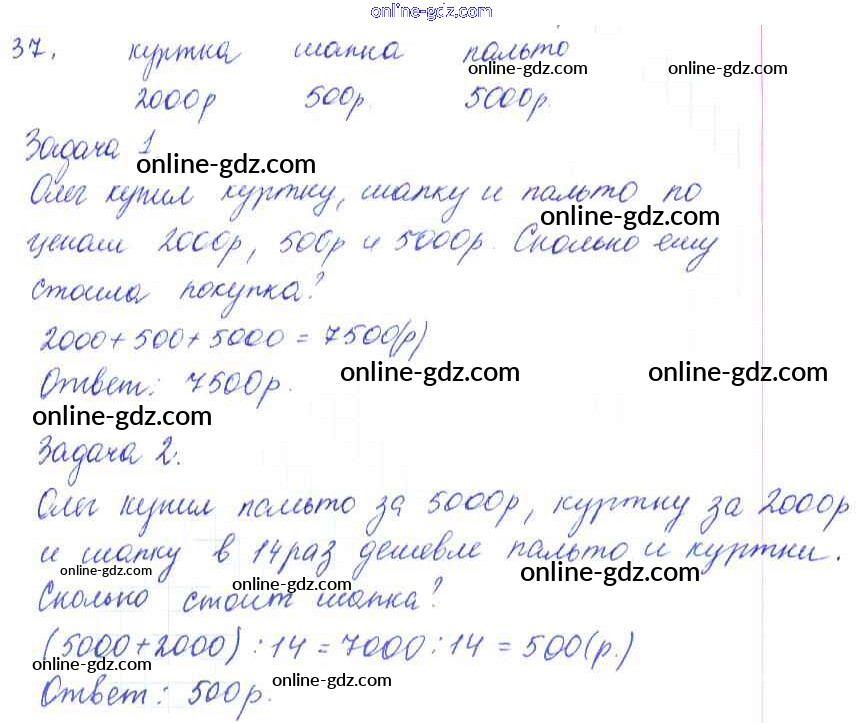 online-gdz.com
37. куртка шапка пальто
online-gdz.com online-gdz.com
2000р 500р. 5000р.
Задача 1
online-gdz.com
Олег купил куртку, шапку и пальто по
online-gdz.com
ценам 2000р, 500р и 5000р. Сколько ему
стоила покупка?
2000+500+5000=7500(р)
online-gdz.com online-gdz.com
Ответ: 7500р.
online-gdz.com
Задача 2.
Олег купил пальто за 5000р, куртку за 2000р
и шапку в 14 раз дешевле пальто и куртки.
online-gdz.com online-gdz.com online-gdz.com
Сколько стоит шапка?
(5000+2000):14=7000:14=500(р.)
online-gdz.com online-gdz.com
Ответ: 500р.